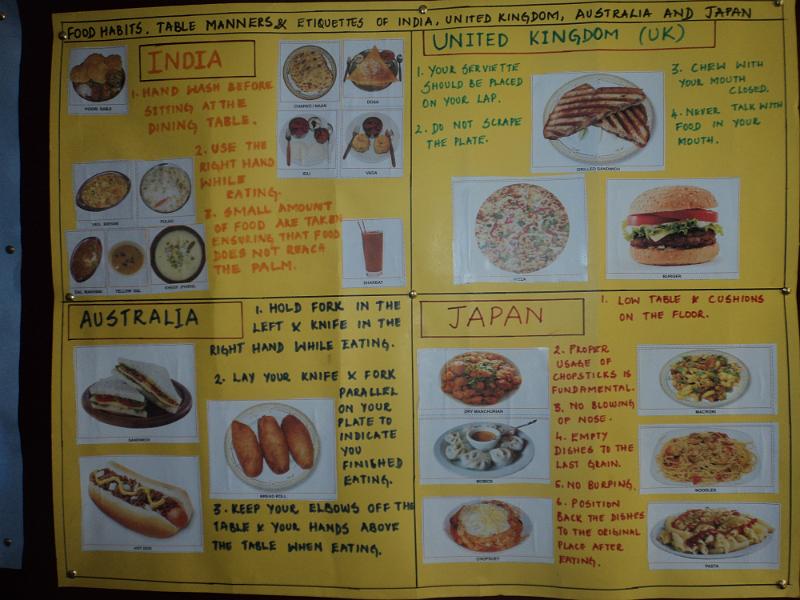 FOOD HABITS, TABLE MANNERS & ETIQUETTES OF INDIA, UNITED KINGDOM, AUSTRALIA AND JAPAN
INDIA
1. HAND WASH BEFORE
SITTING AT THE
DINING TABLE.
2. USE THE
RIGHT HAND
WHILE
EATING.
3. SMALL AMOUNT
OF FOOD ARE TAKEN
ENSURING THAT FOOD
DOES NOT REACH
THE PALM.
DOSA
IDLI
VADA
VEG. BIRYANI
PULAO
DAL MAKHANI
YELLOW DAL
SHARBAT
UNITED KINGDOM (UK)
1. YOUR SERVIETTE
SHOULD BE PLACED
ON YOUR LAP.
2. DO NOT SCRAPE
THE PLATE.
3. CHEW WITH
YOUR MOUTH
CLOSED.
4. NEVER TALK WITH
FOOD IN YOUR
MOUTH.
GRILLED SANDWICH
PIZZA
BURGER
AUSTRALIA
1. HOLD FORK IN THE
LEFT & KNIFE IN THE
RIGHT HAND WHILE EATING.
2. LAY YOUR KNIFE & FORK
PARALLEL
ON YOUR
PLATE TO
INDICATE
YOU
FINISHED
EATING.
3. KEEP YOUR ELBOWS OFF THE
TABLE & YOUR HANDS ABOVE
THE TABLE WHEN EATING.
SANDWICH
BREAD ROLL
HOT DOG
JAPAN
1. LOW TABLE & CUSHIONS
ON THE FLOOR.
2. PROPER
USAGE OF
CHOPSTICKS IS
FUNDAMENTAL.
3. NO BLOWING
OF NOSE.
4. EMPTY
DISHES TO THE
LAST GRAIN.
5. NO BURPING.
6. POSITION
BACK THE DISHES
TO THE ORIGINAL
PLACE AFTER
EATING.
DRY MANCHURIAN
MOMOS
CHOPSUEY
MACRONI
NOODLES
PASTA